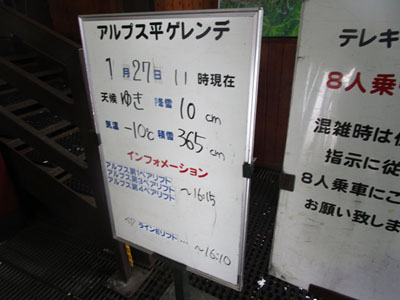 アルプス平ゲレンデ
1月27日 11時現在
天候 ゆき 降雪 10 cm
気温 -10℃ 積雪 365 cm
インフォメーション
アルプス第1ペアリフト
アルプス第3ペアリフト ～16:15
アルプス第4ペアリフト
ラインEリフト … ～16:10
テレキ
8人乗
混雑時は
指示に従
8人乗車にこ
お願い致しま